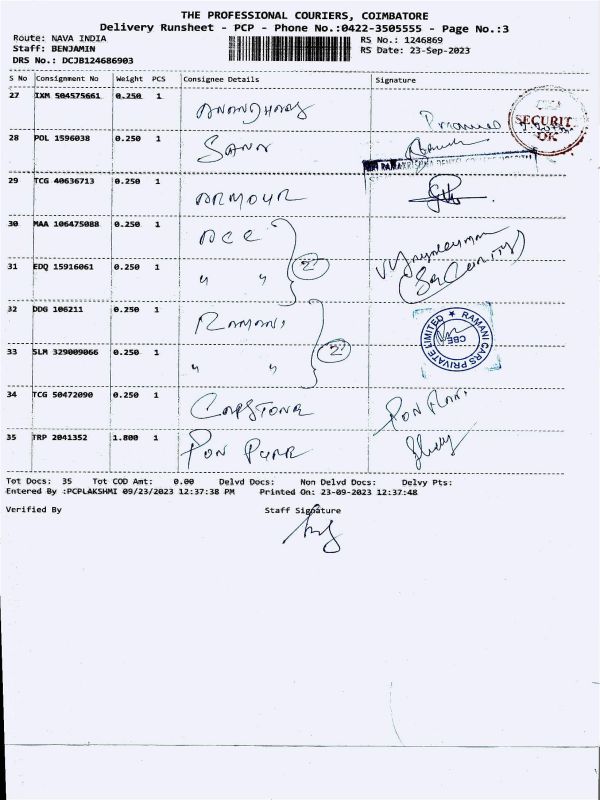 THE PROFESSIONAL COURIERS, COIMBATORE
Delivery Runsheet - PCP - Phone No.:0422-3505555 - Page No.:3
Route: NAVA INDIA RS No.: 1246869
Staff: BENJAMIN RS Date: 23-Sep-2023
DRS No.: DCJB124686903
S No Consignment No Weight PCS Consignee Details Signature
27 IXM 504575661 0.250 1
SECURITY
OK
28 POL 1596038 0.250 1 SANR
29 TCG 40636713 0.250 1 ARMOUR
30 MAA 106475088 0.250 1 ACE
31 EDQ 15916061 0.250 1 " " 2
(Security)
32 DDG 106211 0.250 1 RAMANI
RAMANI CARS PRIVATE LIMITED ★
CBE
33 SLM 329009066 0.250 1 " " 2
34 TCG 50472090 0.250 1 CAPSTONE PON RANI
35 TRP 2041352 1.800 1 PON PURE
Tot Docs: 35 Tot COD Amt: 0.00 Delvd Docs: Non Delvd Docs: Delvy Pts:
Entered By :PCPLAKSHMI 09/23/2023 12:37:38 PM Printed On: 23-09-2023 12:37:48
Verified By Staff Signature